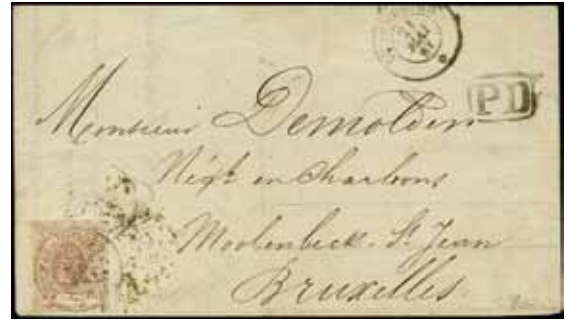 PD
Monsieur Demolder
Négt en Charbons
Moolenbeck-St Jean
Bruxelles